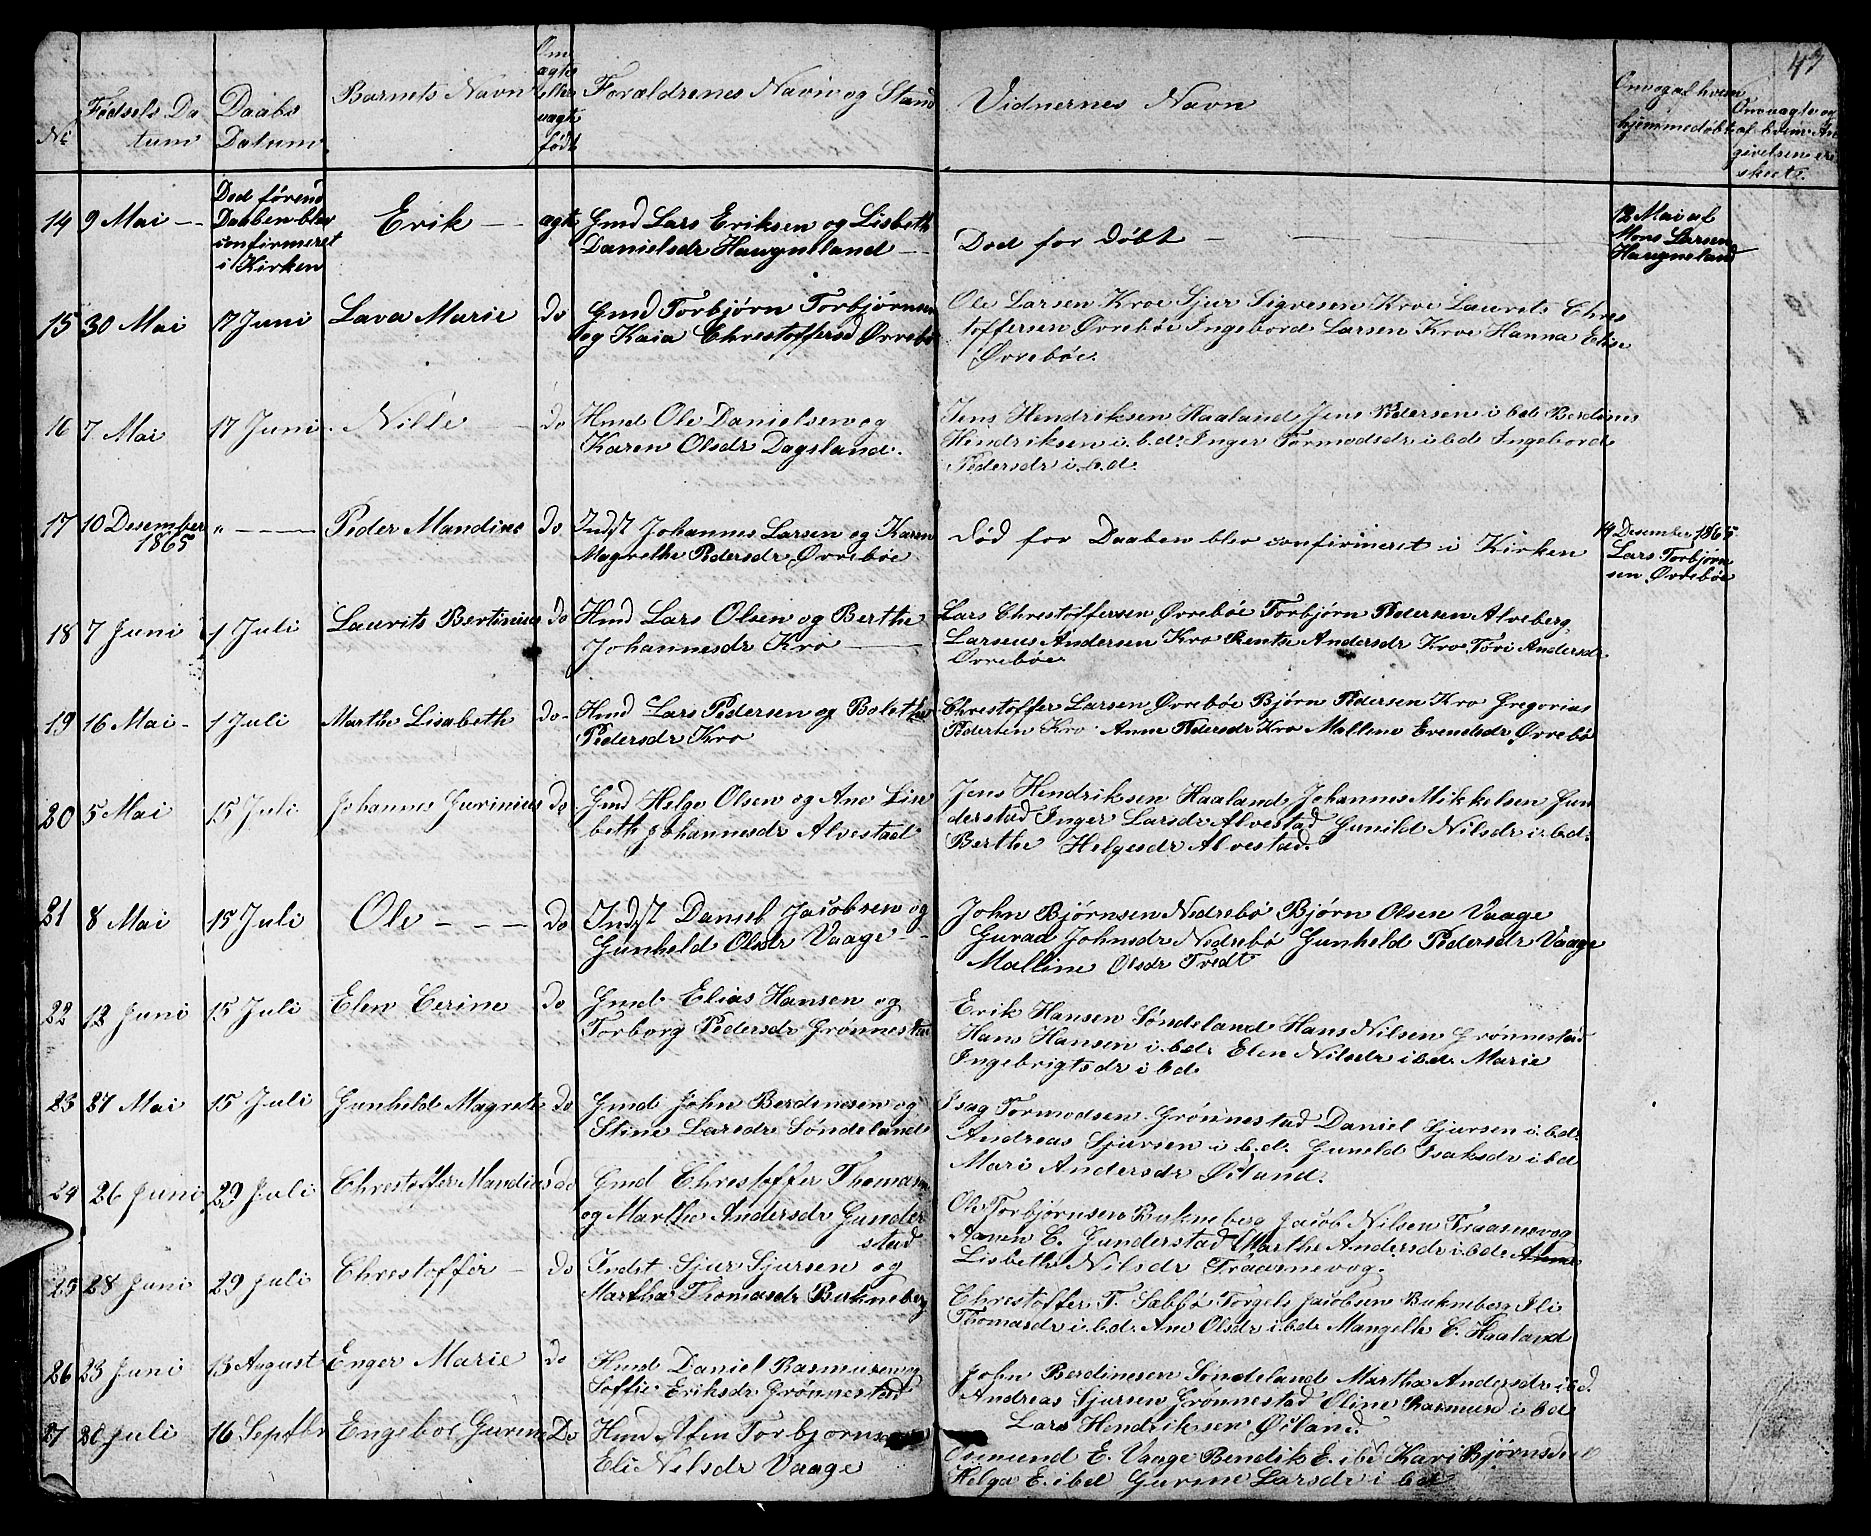 47
No
Fødsels Da
tum
Daabs
Datum
Barnets Navn
Om
ægte
eller
uægte
født
Forældrenes Navn og Stand
Vidnernes Navn
Om og af hvem
hjemmedøbt
Om uægte og
af hvem An
givelsen er
skeet.
14 9 Mai
Død førend
Daaben blev
confirmeret
i Kirken
Erik
ægte
Gmd Lars Eriksen og Lisbeth
Danielsdr Haugneland
Død for døbt
12 Mai af
Mons Larsen
Haugneland
15 30 Mai
17 Juni
Lava Marie
do
Gmd Torbjørn Torbjørnsen
og Kaia Chrestoffersd Ørrebø
Ole Larsen Kroe Sjur Sigvesen Kroe Laurets Chres
toffersen Ørrebøe Ingebord Larsen Kroe Hanna Elise
Ørrebøe.
16 7 Mai
17 Juni
Nille
do
Hmd Ole Danielsen og
Karen Olsdr Dagsland.
Jens Hendriksen Haaland Jens Pedersen i b.d. Berdines
Hendriksen i.b.d. Inger Tormodsdr i b d Ingebord
Pedersdr i.b.d.
17 10 Desember
1865
"
Peder Mandine
do
Indst Johannes Larsen og Karen
Magrethe Pedersdr Ørrebøe
død for Daaben blev confirmeret i Kirken
14 Desember 1865
Lars Torbjørn
sen Ørrebøe
18 7 Juni
1 Juli
Laurits Bertinius
do
Hmd Lars Olsen og Berthe
Johannesdr Kro
Lars Chrestoffersen Ørrebøe Torbjørn Pedersen Alveberg
Larseus Andersen Kro Rentse Andersdr Kroe Tori Andersdr
Ørrebøe
19 16 Mai
1 Juli
Marthe Lisabeth
do
Hmd Lars Pedersen og Bolethe
Pedersdr Kro
Chrestoffer Larsen Ørrebøe Bjørn Pedersen Kro Gregorius
Pedersen Kro Anne Pedersdr Kro Malline Evendsdr Ørrebø
20 5 Mai
15 Juli
Johannes Gurinius
do
Gmd Helge Olsen og Ane Lis
beth Johannesdr Alvestad
Jens Hendriksen Haaland Johannes Mikkelsen Gun
derstad Inger Larsdr Alvestad Gunild Nilsdr i.b.d.
Berthe Helgesdr Alvestad.
21 8 Mai
15 Juli
Ole
do
Indst Daniel Jacobsen og
Gunheld Olsdr Vaage
John Bjørnsen Nedrebø Bjørn Olsen Vaage
Guraa Johnsdr Nedrebø Gunheld Pedersdr Vaage
Malline Olsdr Tvedt
22 12 Juni
15 Juli
Elen Cerine
do
Gmd. Elias Hansen og
Torborg Pedersdr Grønnestad
Erik Hansen Søndeland Hans Nilsen Grønnestad
Hans Hansen i.b.d. Elen Nilsdr i b.d. Marie
Ingebrigtsdr i b d
23 27 Mai
15 Juli
Gunheld Magrete
do
Gmd. John Berdinesen og
Stine Larsdr Søndeland
Isag Tormodsen Grønnestad Daniel Sjursen i.b.d.
Andreas Sjursen i b.d. Gunild Isaksdr i b d
Mari Andersdr Øiland.
24 26 Juni
29 Juli
Chrestoffer Mandius
do
Gmd Chrestoffer Thomasen
og Marthe Andersdr Gunder
stad
Ole Torbjørnsen Bukneberg Jacob Nilsen Traanevog
Aanen C. Gunderstad Marthe Andersdr i b.d.
Lisbeth Nilsdr Traanevog.
25 28 Juni
29 Juli
Chrestoffer
do
Indst Sjur Sjursen og
Martha Thomasdr Bukneberg
Chrestoffer T. Sæbbø Torgels Jacobsen Bukneberg Eli
Thomasdr i.b.d. Ane Olsdr i b.d. Mangelle C. Haaland
26 23 Juni
13 August
Enger Marie
do
Hmd Daniel Rasmusen og
Soffie Eriksdr Grønnestad
John Berdinesen Søndeland Martha Andersdr i b.d.
Andreas Sjursen Grønnestad Oline Rasmusd i b d
Lars Hendriksen Øiland.
27 20 Juli
16 Septbr
Engeboe Gurine
Do
Hmd Aten Torbjørnsen
Eli Nilsdr Vaage
Osmund E. Vaage Bendik E. i b d Kari Bjørnsdr i b d
Helga E. i b d Gurine Larsdr i b d